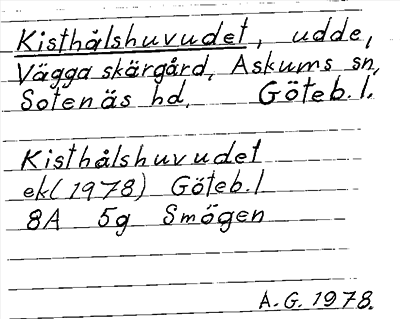 Kisthålshuvudet, udde,
Vägga skärgård, Askums sn,
Sotenäs hd, Göteb. l.
Kisthålshuvudet
ek (1978) Göteb. l
8A 5g Smögen
A.G. 1978.